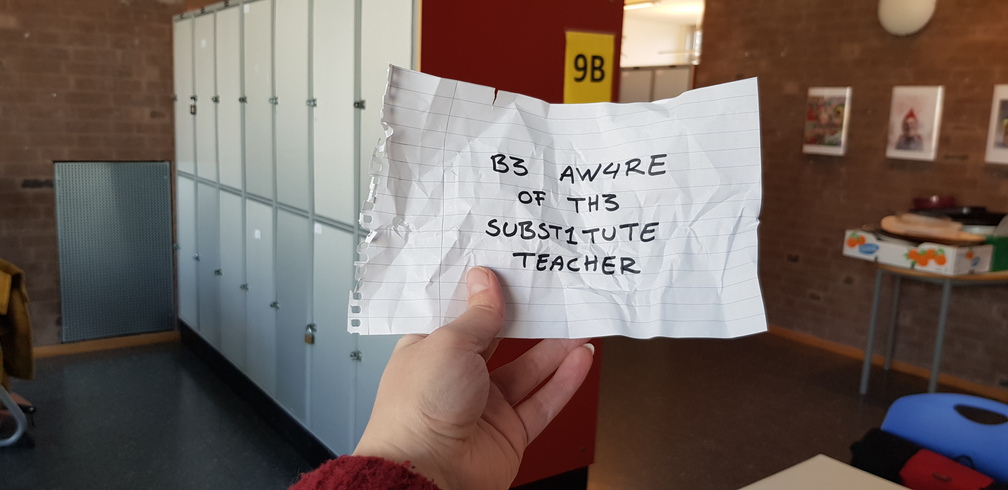 9B
B3 AW4RE
OF TH3
SUBST1TUTE
TEACHER